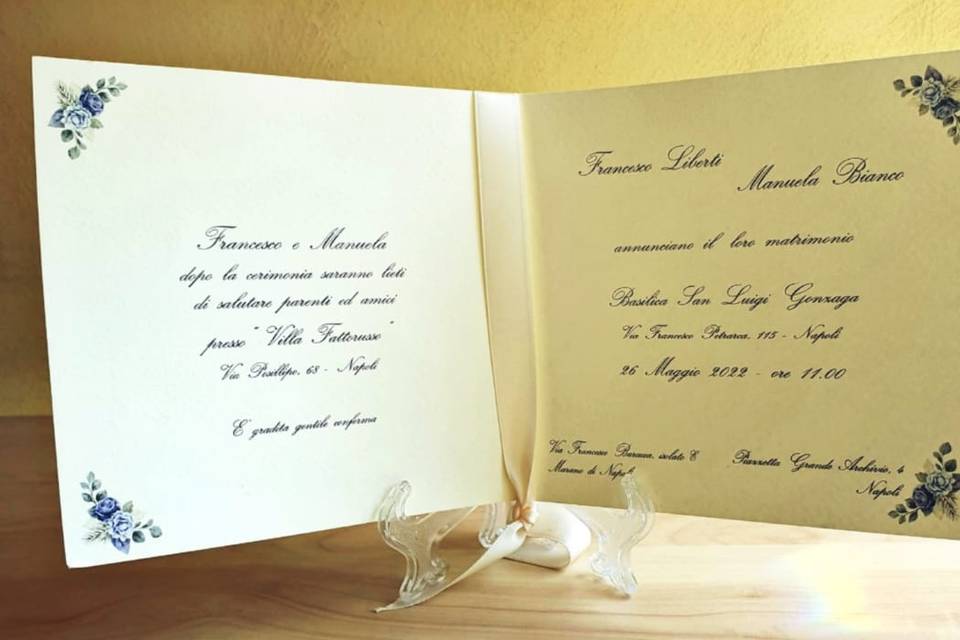 Francesco e Manuela
dopo la cerimonia saranno lieti
di salutare parenti ed amici
presso " Villa Fattorusso "
Via Posillipo, 68 - Napoli
E' gradita gentile conferma
Francesco Liberti
Manuela Bianco
annunciano il loro matrimonio
Basilica San Luigi Gonzaga
Via Francesco Petrarca, 115 - Napoli
26 Maggio 2022 - ore 11.00
Via Francesco Baracca, isolato E
Marano di Napoli
Piazzetta Grande Archivio, 4
Napoli